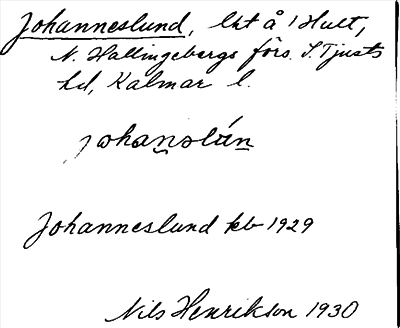 Johanneslund, lht å 1 Hult,
N. Hallingebergs förs. S. Tjusts
hd, Kalmar l.
johanslún
Johanneslund kb 1929
Nils Henrikson 1930